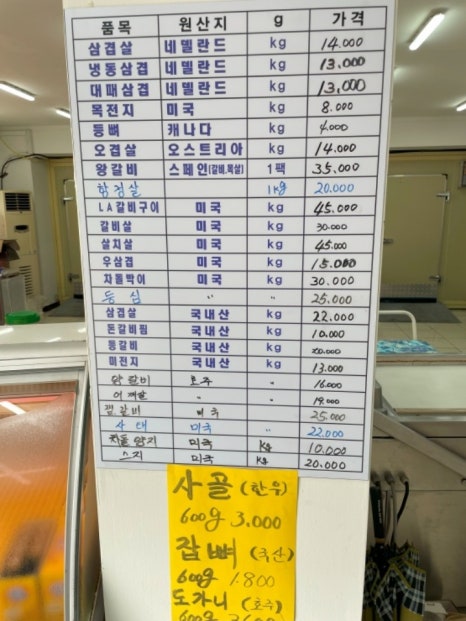 품목 원산지 g 가격
삼겹살 네델란드 kg 14.000
냉동삼겹 네델란드 kg 13.000
대패삼겹 네델란드 kg 13,000
목전지 미국 kg 8.000
등뼈 캐나다 kg 4.000
오겹살 오스트리아 kg 14.000
왕갈비 스페인(갈비.목살) 1팩 35.000
항정살 1kg 20.000
LA갈비구이 미국 kg 45.000
갈비살 미국 kg 30.000
살치살 미국 kg 45.000
우삼겹 미국 kg 15.000
차돌박이 미국 kg 30.000
등심 〃 〃 25.000
삼겹살 국내산 kg 22.000
돈갈비찜 국내산 kg 10.000
등갈비 국내산 kg 20.000
미전지 국내산 kg 13.000
왕갈비 호주 〃 16.000
〃 〃 19.000
갈비 미국 25.000
사태 미국 〃 22.000
차돌양지 미국 kg 10.000
스지 미국 kg 20.000
사골 (한우)
600g 3.000
잡뼈 (국산)
600g 1.800
도가니 (호주)
600g